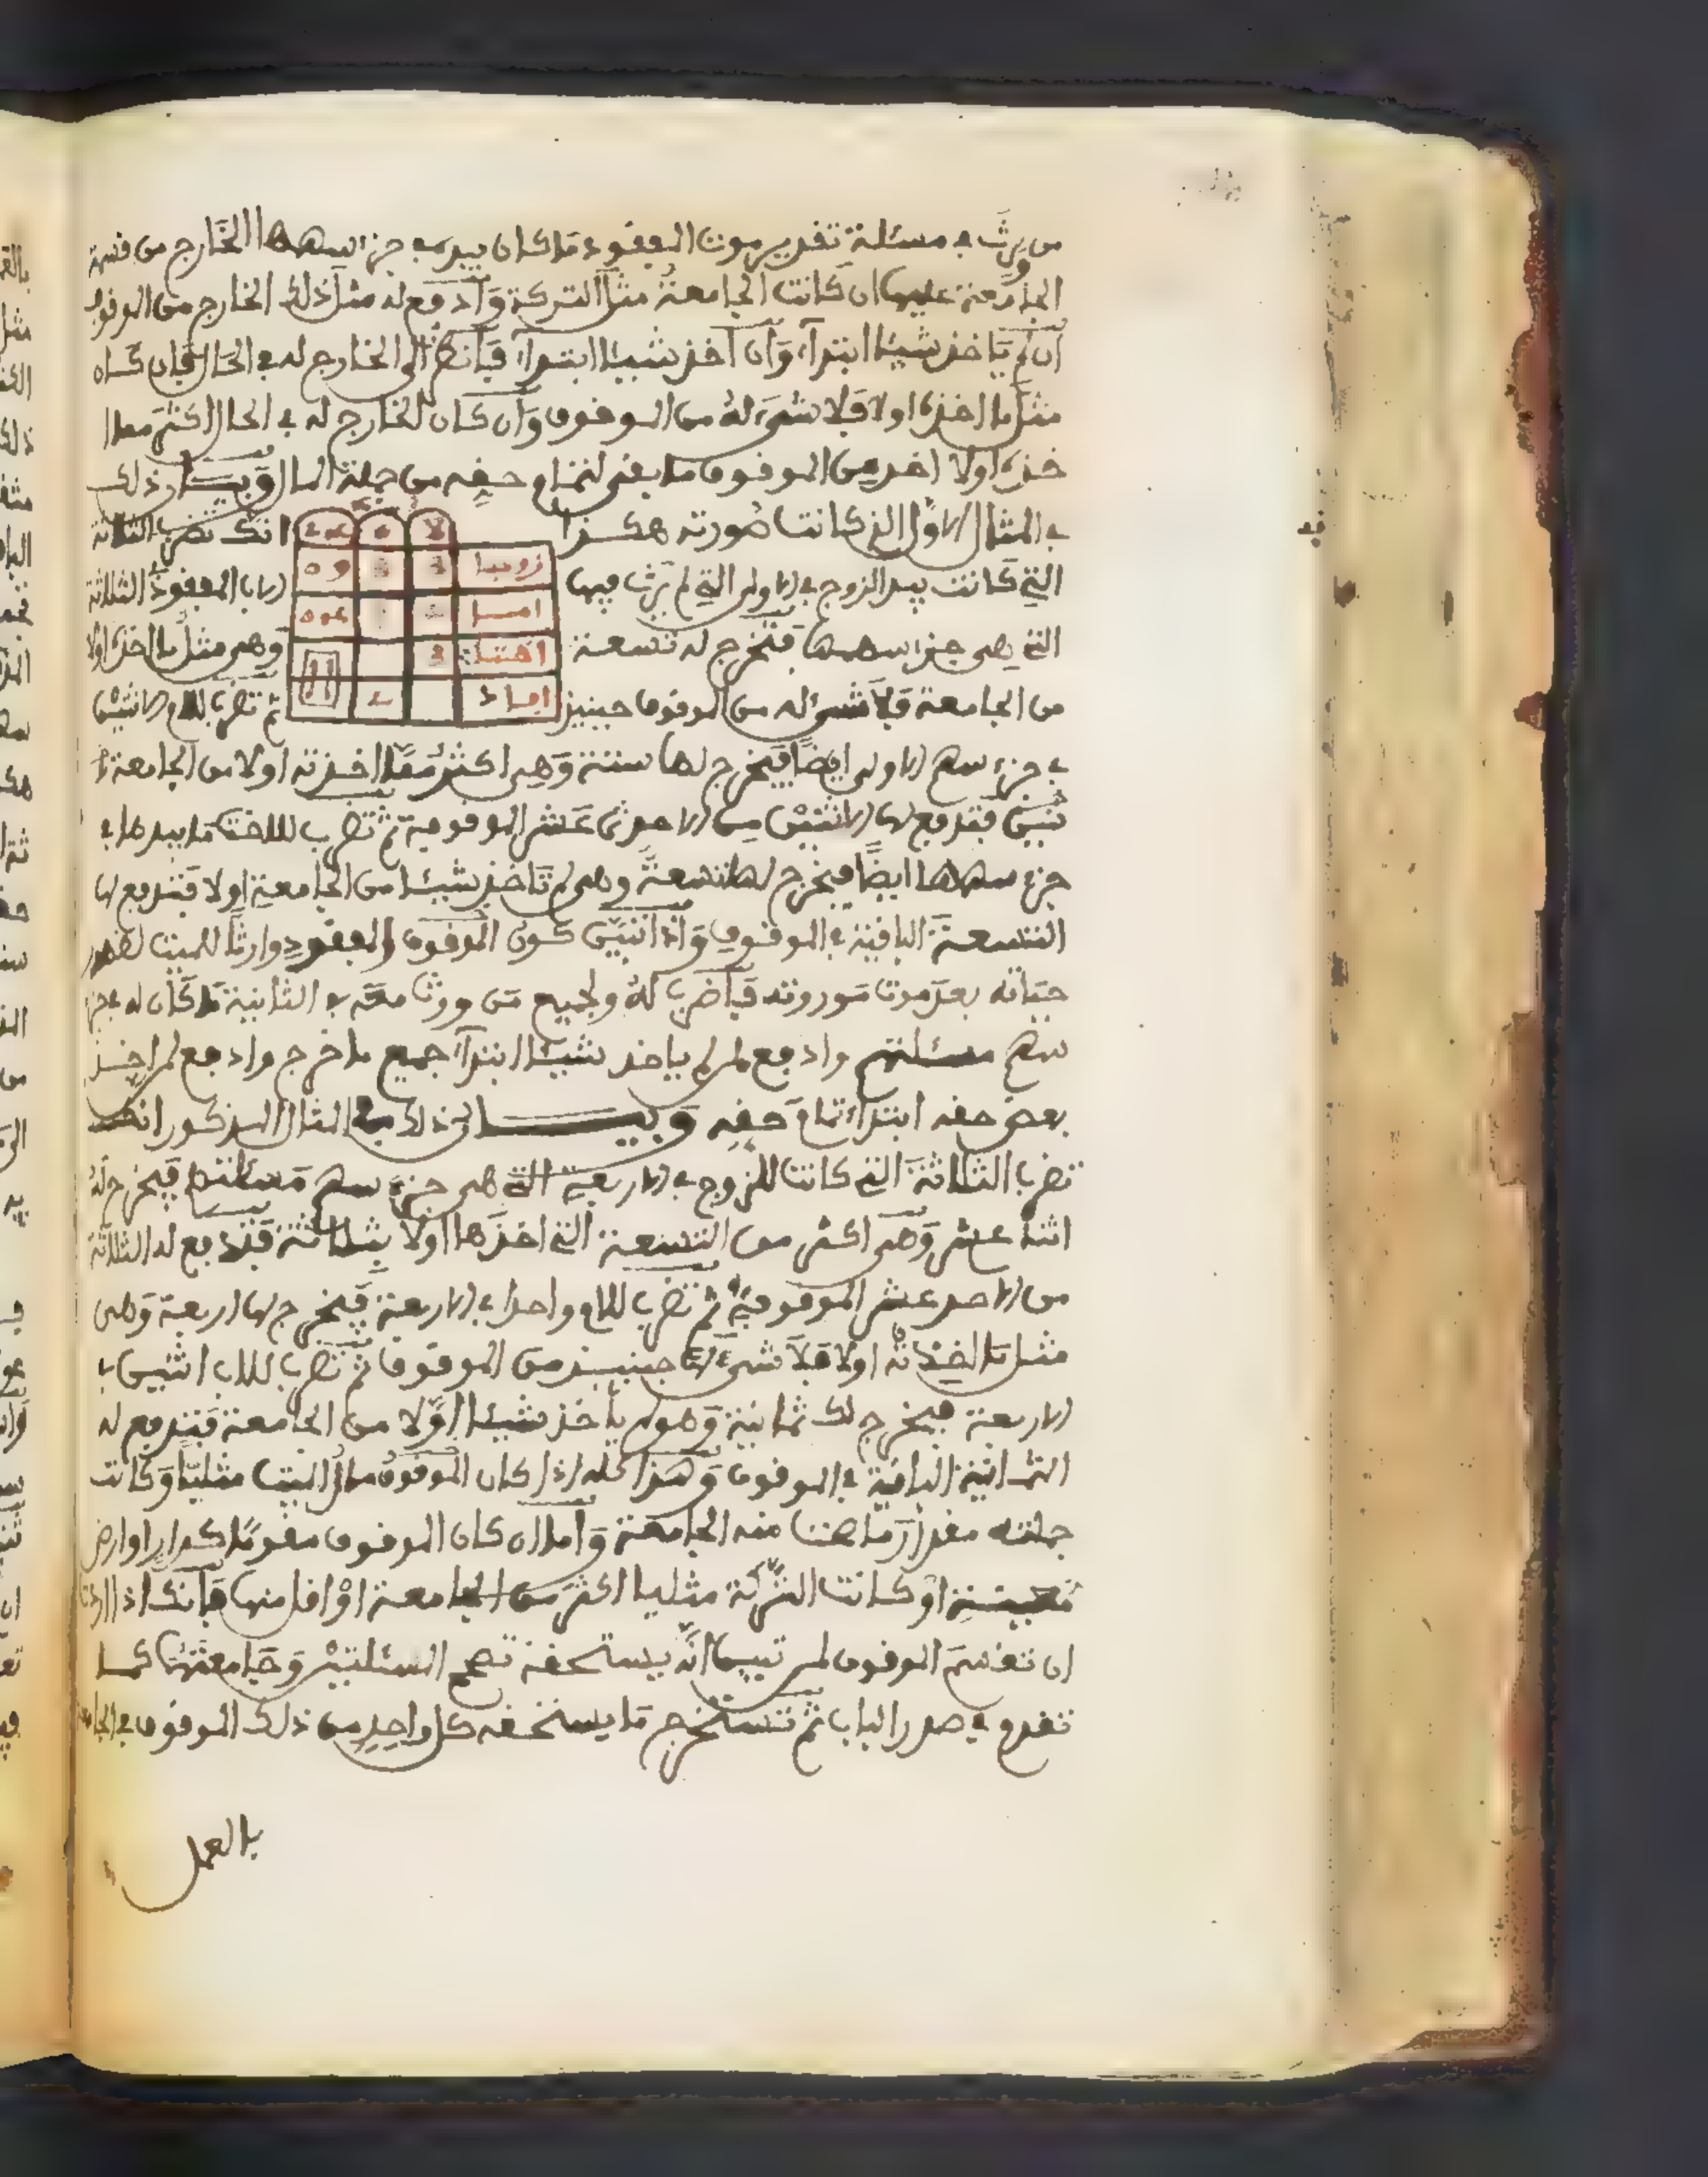 من يرث في مسئلة تقدير موت المفقود ما كان بيده في جزء سهمها الخارج من قسمة
الجامعة عليها ان كانت الجامعة مثل التركة وادفع له مثل ذلك الخارج من الموقوف
ان لم ياخذ شيئا ابتداء وان اخذ شيئا ابتداء فانظر الى الخارج له في الحال فان كان
مثل ما اخذه اولا فلا شيء له من الموقوف وان كان الخارج له في الحال اكثر مما ا
خذه اولا اخذ من الموقوف ما بقي لتمام حقه من جملة المال وبيان ذلك
في المثال الاول الذي كانت صورته هكذا انك تضرب الثلاثة
التي كانت بيد الزوج في الاولى التي لم يرث فيها الاب المفقود في الثلاثة
التي هي جزء سهمها فتخرج له تسعة وهي مثل ما اخذه اولا
من الجامعة فلا شيء له من الموقوف حينئذ ثم تضرب للام الاثنين
في جزء سهم الاولى ايضا فيخرج لها ستة وهي اكثر مما اخذته اولا من الجامعة با
ثنين فتدفع لها الاثنين من الاحدى عشر الموقوفة ثم تضرب للاخت ما بيدها في
جزء سهمها ايضا فيخرج لها تسعة وهي لم تاخذ شيئا من الجامعة اولا فتدفع لها
التسعة الباقية في الموقوف واذا تبين كون الموقوف المفقود وارثا للميت لظهور
حياته بعد موت موروثه فاضرب له ولجميع من ورث معه في الثانية ما كان له في جزء
سهم مسئلتهم وادفع لمن لم ياخذ شيئا ابتداء جميع ما خرج وادفع لمن اخذ
بعض حقه ابتداء تمام حقه وبيان ذلك في المثال المذكور انك
تضرب الثلاثة التي كانت للزوج في الاربعة التي هي جزء سهم مسئلتهم فيخرج له
اثنا عشر وهي اكثر من التسعة التي اخذها اولا بثلاثة فتدفع له الثلاثة
من الاحد عشر الموقوفة ثم تضرب للام واحدا في الاربعة فيخرج لها اربعة وهي
مثل ما اخذته اولا فلا شيء لها حينئذ من الموقوف ثم تضرب للاب اثنين في
الاربعة فيخرج لك ثمانية وهو لم ياخذ شيئا اولا من الجامعة فتدفع له
الثمانية الباقية في الموقوف وهذا كله اذا كان الموقوف مال الميت مثليا وكانت
جملته مقدار ما صحت منه الجامعة واما ان كان الموقوف مقوما كدار او ارض
معينة او كانت التركة مثليا اكثر من الجامعة او اقل منها فانك اذا اردت
ان تقسم الموقوف لمن تبين انه يستحقه تصحح المسئلتين وجامعتهما كما
تقدم في صدر الباب ثم تستخرج ما يستحقه كل واحد من ذلك الموقوف في الجامعة
بالعمل